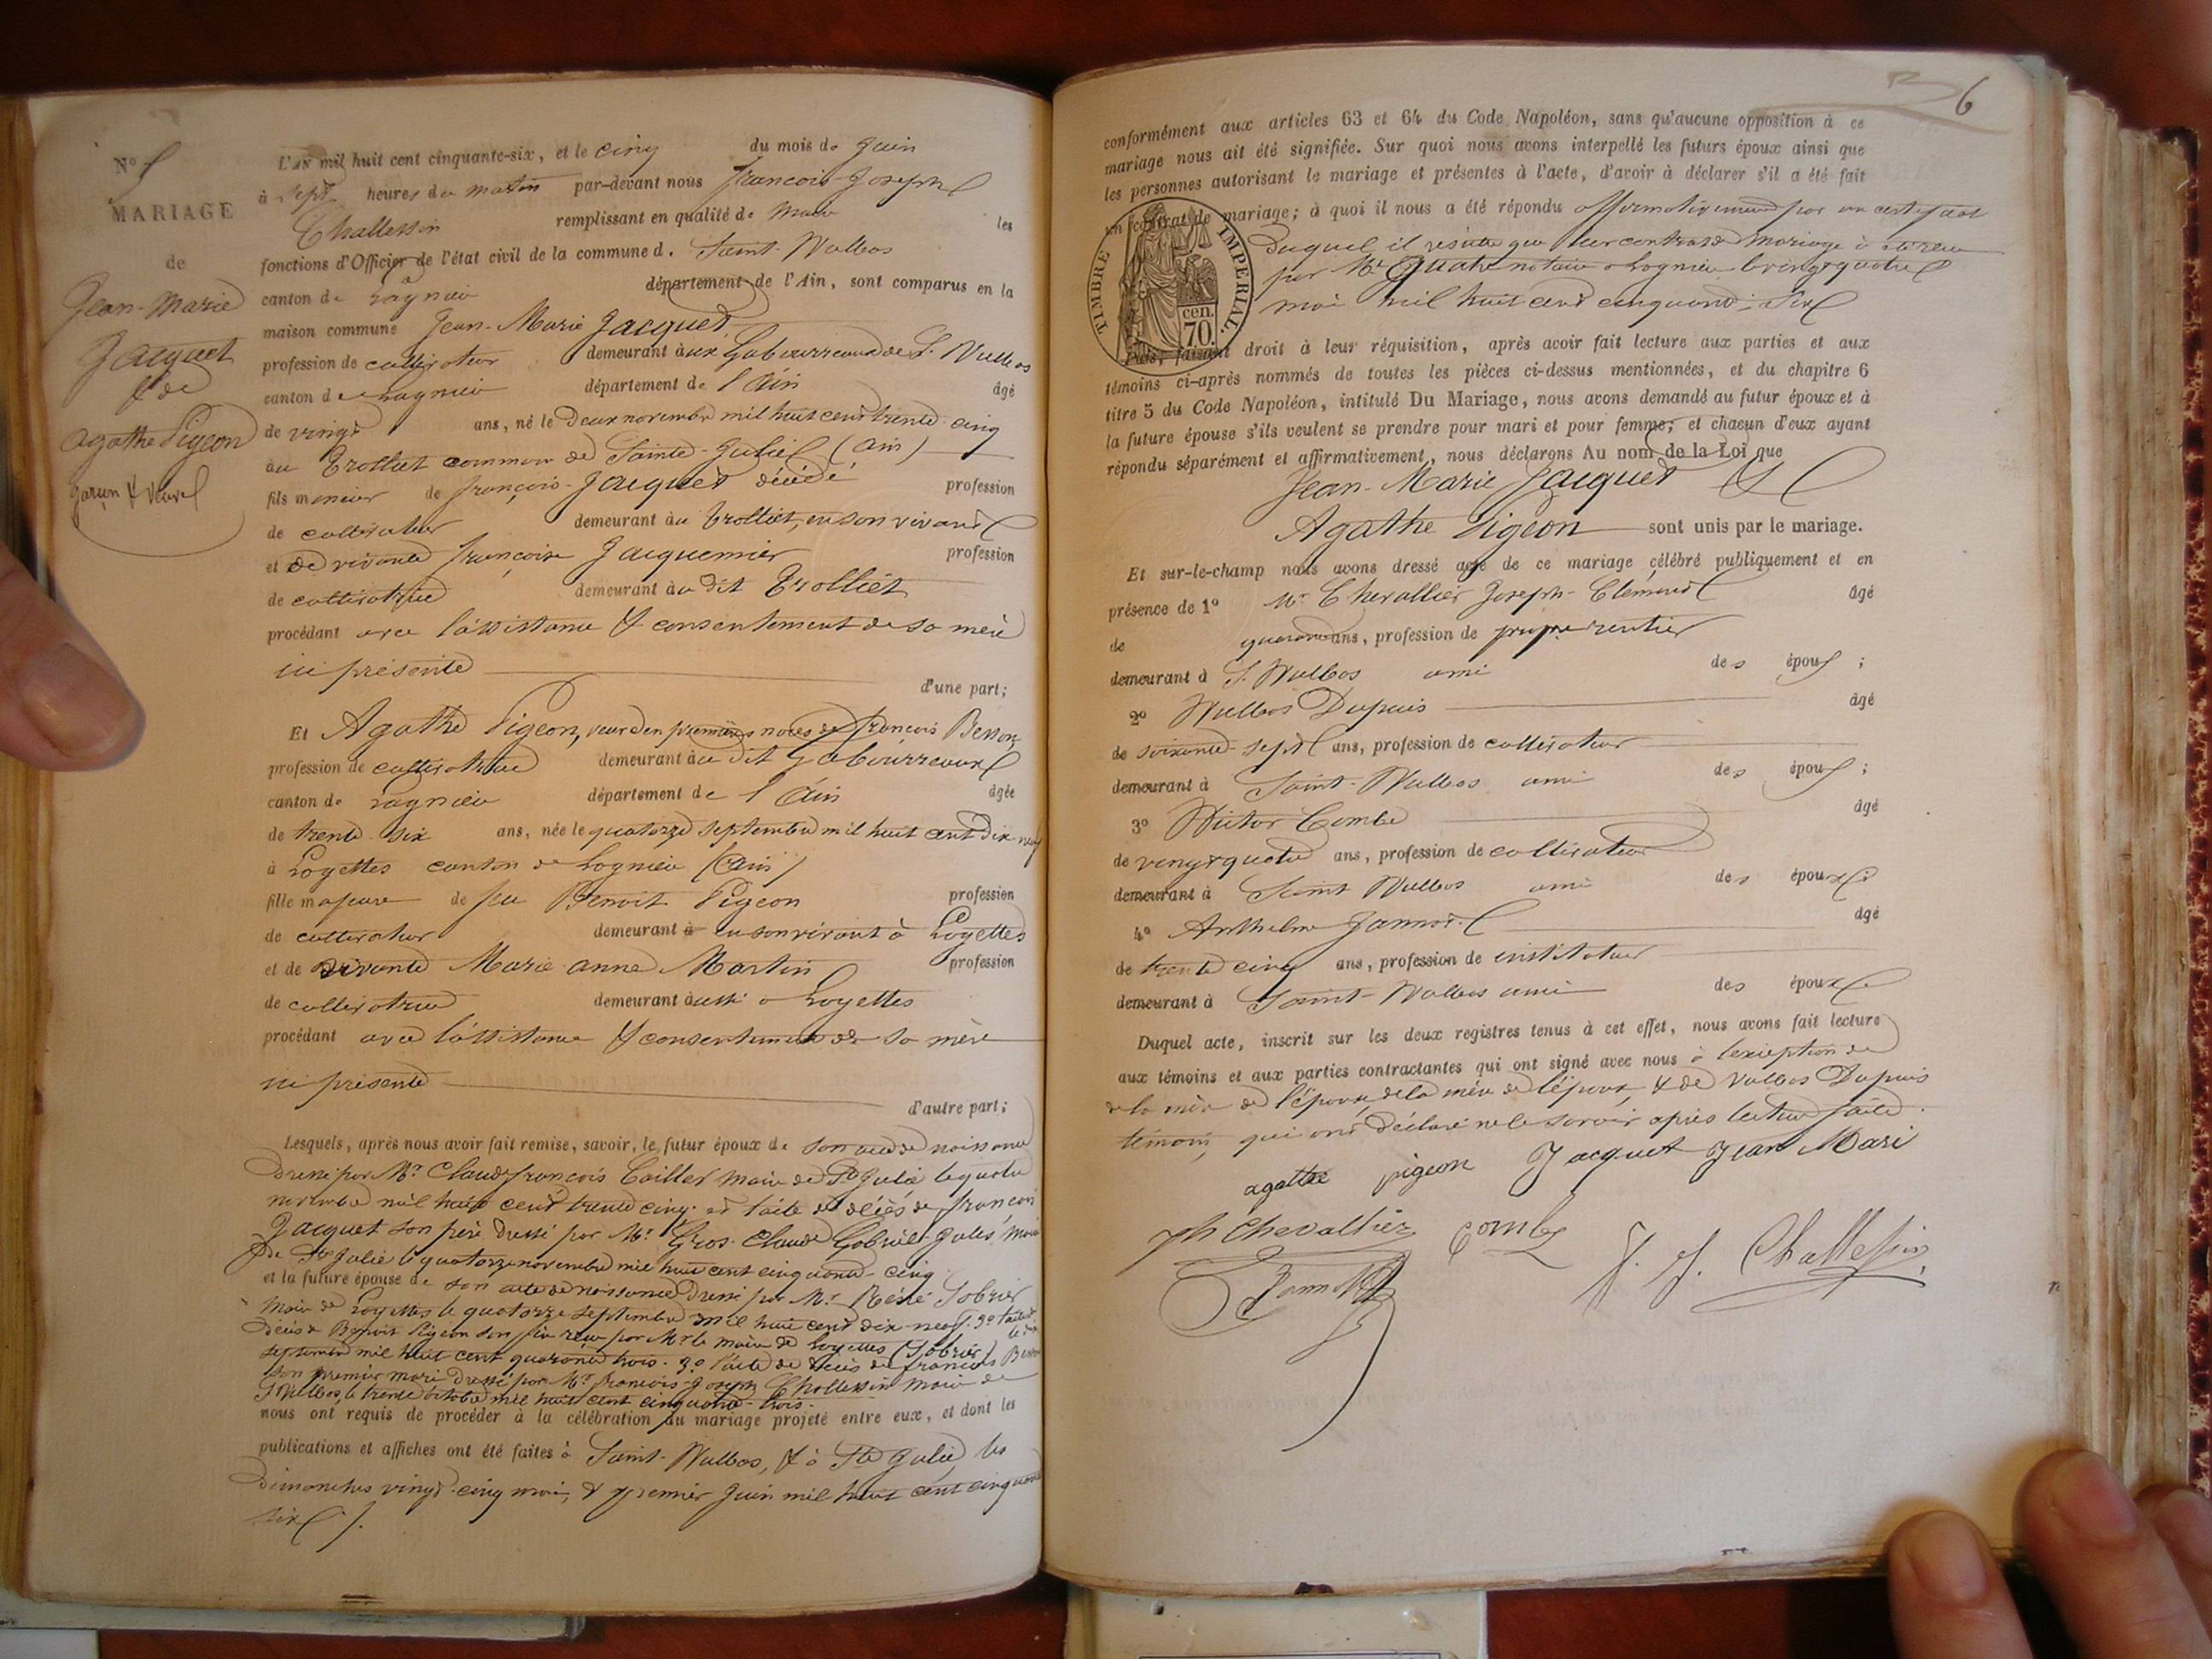 N° 5
MARIAGE
de
Jean-Marie
Jacquet
& de
Agathe Pigeon
garçon & veuve
L'AN mil huit cent cinquante-six, et le cinq du mois de Juin
à sept heures du matin par-devant nous francois-Joseph
Challessin remplissant en qualité de Maire les
fonctions d'Officier de l'état civil de la commune d. Saint-Vulbas
canton de Lagnieu département de l'Ain, sont comparus en la
maison commune Jean-Marie Jacquet
profession de cultivateur demeurant aux Gabourreaux de St Vulbas
canton de Lagnieu département de l'Ain âgé
de vingt ans, né le Deux novembre mil huit cent trente cinq
au Trolliet commune de Sainte-Julie (Ain)
fils mineur de françois-Jacquet décédé profession
de cultivateur demeurant au Trolliet, en son vivant
et de vivante françoise Jacquemier profession
de cultivatrice demeurant au dit Trolliet
procédant avec l'assistance & consentement de sa mère
ici présente
d'une part;
Et Agathe Pigeon, veuve en premières noces de francois Besson
profession de cultivatrice demeurant au dit Gabourreaux
canton de Lagnieu département de l'Ain âgée
de trente-six ans, née le quatorze septembre mil huit cent dix-neuf
à Loyettes canton de Lagnieu (Ain)
fille majeure de feu Benoit Pigeon profession
de cultivateur demeurant à en son vivant à Loyettes
et de vivante Marie-anne Martin profession
de cultivatrice demeurant aussi à Loyettes
procédant avec l'assistance & consentement de sa mère
ici présente
d'autre part;
Lesquels, après nous avoir fait remise, savoir, le futur époux de son acte de naissance
Dressé par Mr. Claude françois Cailler Maire de Ste Julie le quatre
novembre mil huit cent trente cinq. et l'acte de décès de françois
Jacquet son père dressé par Mr. Gros-Claude Gabriel-Jules, Maire
de Ste Julie le quatorze novembre mil huit cent cinquante-cinq
et la future épouse de son acte de naissance Dressé par Mr. Réné Sobrier
Maire de Loyettes le quatorze septembre mil huit cent dix-neuf. 2° l'acte de
Décès de Benoit Pigeon son père reçu par Mr le Maire de Loyettes (Sobrier)
septembre mil huit cent quarante trois. 3° l'acte de décès de francois Besson
son premier mari Dressé par Mr. francois-Joseph Challessin Maire de
St Vulbas, le trente octobre mil huit cent cinquante-trois.
nous ont requis de procéder à la célébration du mariage projeté entre eux, et dont les
publications et affiches ont été faites à Saint-Vulbas, & à Ste Julie, les
Dimanches vingt-cinq mai, & premier Juin mil huit cent cinquante
six /.
6
conformément aux articles 63 et 64 du Code Napoléon, sans qu'aucune opposition à ce
mariage nous ait été signifiée. Sur quoi nous avons interpellé les futurs époux ainsi que
les personnes autorisant le mariage et présentes à l'acte, d'avoir à déclarer s'il a été fait
un contrat de mariage; à quoi il nous a été répondu affirmativement par un certificat
TIMBRE IMPERIAL.
cen.
70.
Duquel il résulte que leur contrat de mariage a été reçu
par Me Quatre notaire à Lagnieu le vingt quatre
mai mil huit cent cinquante-six
Puis, faisant droit à leur réquisition, après avoir fait lecture aux parties et aux
témoins ci-après nommés de toutes les pièces ci-dessus mentionnées, et du chapitre 6
titre 5 du Code Napoléon, intitulé Du Mariage, nous avons demandé au futur époux et à
la future épouse s'ils veulent se prendre pour mari et pour femme; et chacun d'eux ayant
répondu séparément et affirmativement, nous déclarons Au nom de la Loi que
Jean-Marie Jacquet &
Agathe Pigeon sont unis par le mariage.
Et sur-le-champ nous avons dressé acte de ce mariage célébré publiquement et en
présence de 1° Mr. Chevallier Joseph-Clément âgé
de quarante ans, profession de propre rentier
demeurant à St. Vulbas ami des époux;
2° Vulbas Dupuis âgé
de soixante-sept ans, profession de cultivateur
demeurant à Saint-Vulbas ami des époux;
3° Victor Combe âgé
de vingt quatre ans, profession de cultivateur
demeurant à Saint Vulbas ami des époux;
4° Anthelme Jannot âgé
de trente cinq ans, profession de instituteur
demeurant à Saint-Vulbas ami des époux
Duquel acte, inscrit sur les deux registres tenus à cet effet, nous avons fait lecture
aux témoins et aux parties contractantes qui ont signé avec nous à l'exception de
de la mère de l'époux, de la mère de l'épouse, & de Vulbas Dupuis
témoin, qui ont déclaré ne le savoir après lecture faite.
agathe pigeon Jacquet Jean Mari
Jh Chevallier Combe F. J. Challessin
Jannot